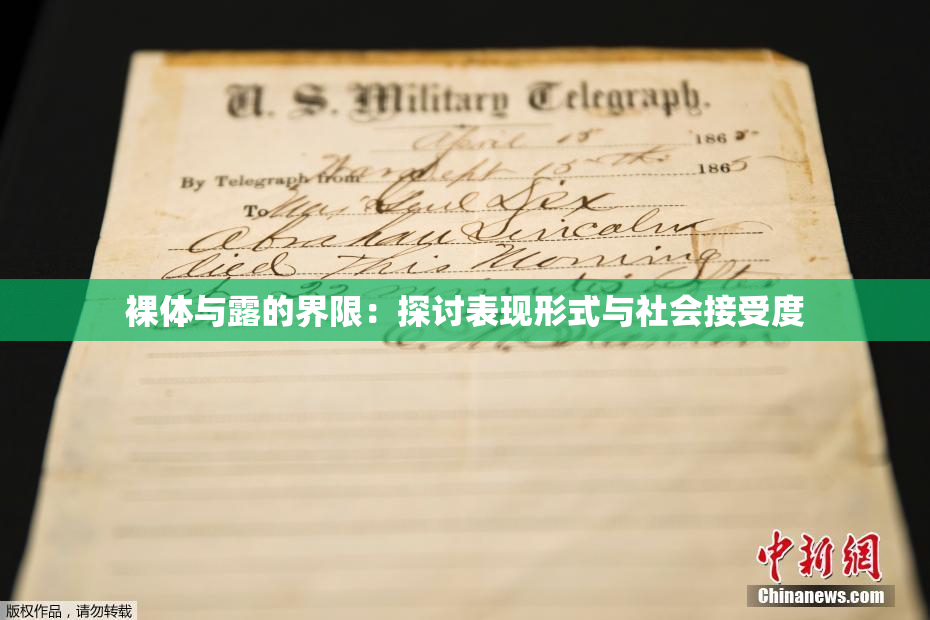 U. S. Military Telegraph.
April 15 1865
By Telegraph from War Dept 15th 1865
To Maj Genl Dix
Abraham Lincoln
died This Morning
22 minutes after
裸体与露的界限：探讨表现形式与社会接受度
E. M. Stanton
中新网
Chinanews.com
版权作品，请勿转载